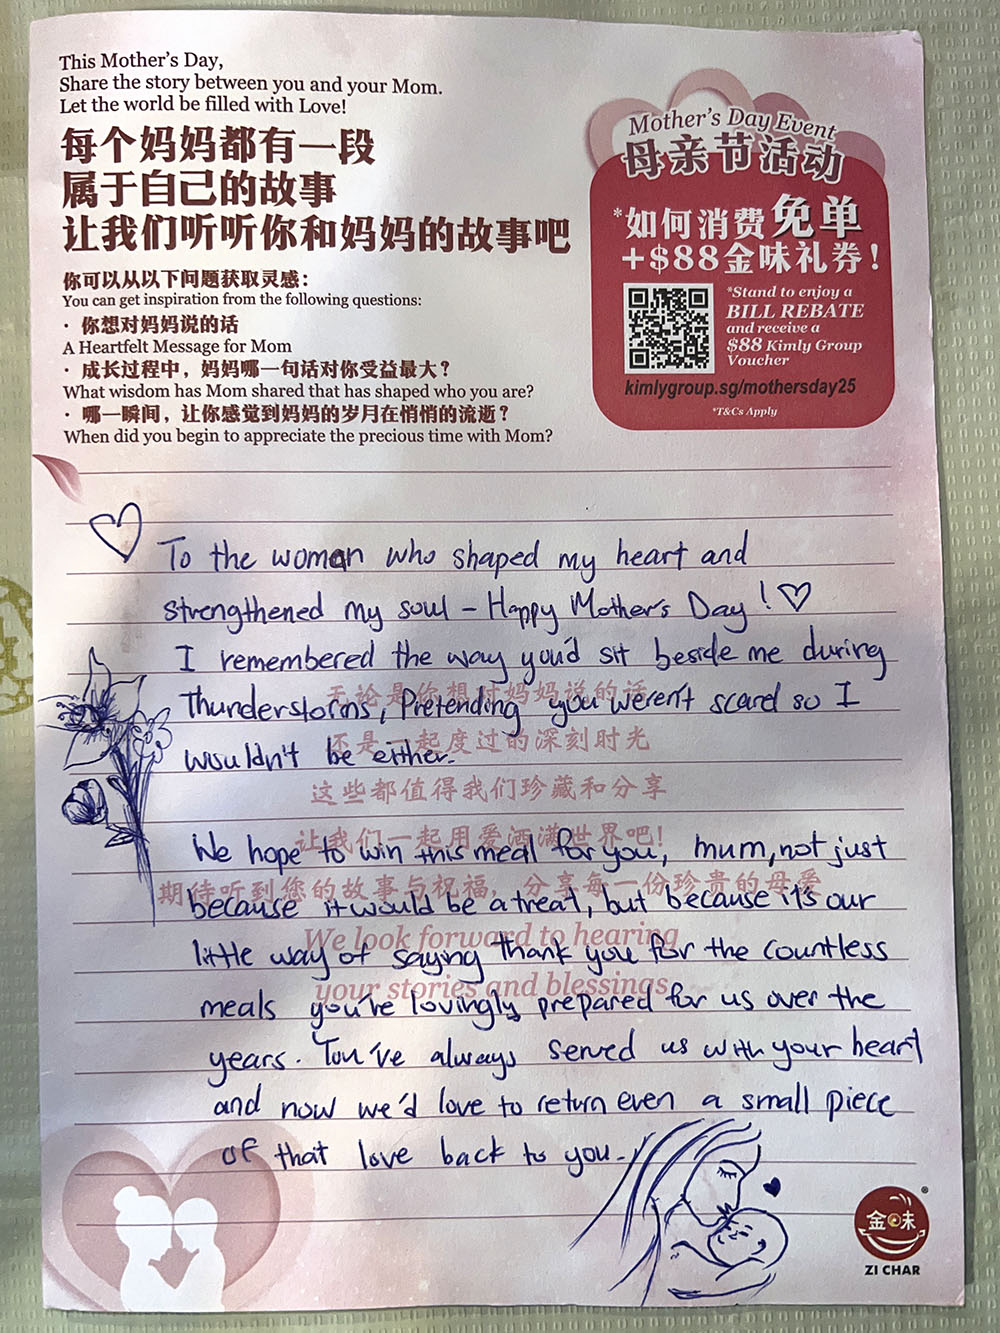 This Mother's Day,
Share the story between you and your Mom.
Let the world be filled with Love!
每个妈妈都有一段
属于自己的故事
让我们听听你和妈妈的故事吧
你可以从以下问题获取灵感：
You can get inspiration from the following questions:
· 你想对妈妈说的话
A Heartfelt Message for Mom
· 成长过程中，妈妈哪一句话对你受益最大？
What wisdom has Mom shared that has shaped who you are?
· 哪一瞬间，让你感觉到妈妈的岁月在悄悄的流逝？
When did you begin to appreciate the precious time with Mom?
Mother's Day Event
母亲节活动
*如何消费免单
+$88金味礼券！
*Stand to enjoy a
BILL REBATE
and receive a
$88 Kimly Group
Voucher
kimlygroup.sg/mothersday25
*T&Cs Apply
To the woman who shaped my heart and
strengthened my soul – Happy Mother's Day!
I remembered the way you'd sit beside me during
Thunderstorms, Pretending you weren't scared so I
wouldn't be either.
无论是你想对妈妈说的话
还是一起度过的深刻时光
这些都值得我们珍藏和分享
让我们一起用爱洒满世界吧！
期待听到您的故事与祝福，分享每一份珍贵的母爱
We look forward to hearing
your stories and blessings
We hope to win this meal for you, mum, not just
because it would be a treat, but because it's our
little way of saying thank you for the countless
meals you've lovingly prepared for us over the
years. You've always served us with your heart
and now we'd love to return even a small piece
of that love back to you.
金味
®
ZI CHAR